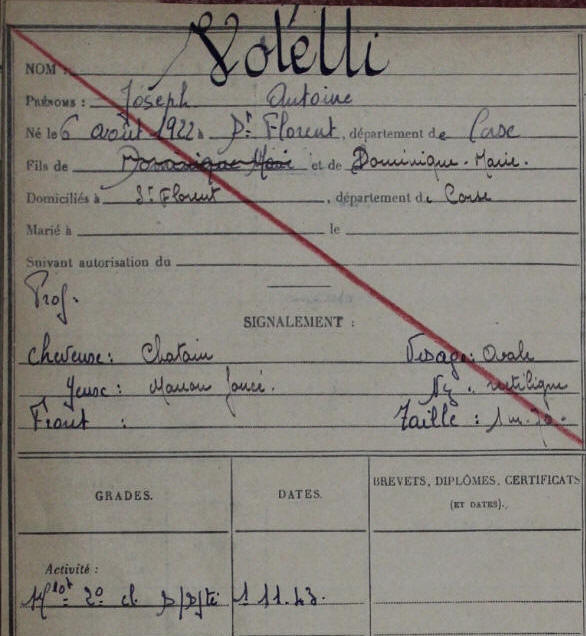 NOM : Lotelli
PRÉNOMS : Joseph Antoine
Né le 6 août 1922 à St Florent, département de Corse
Fils de Dominique Marie et de Dominique-Marie.
Domiciliés à St Florent, département de Corse
Marié à le
Suivant autorisation du
Prof.
SIGNALEMENT :
Cheveux : Chatain Visage : Ovale
Yeux : Marron foncé. Nez : rectiligne
Front : Taille : 1m.70.
GRADES. DATES. BREVETS, DIPLÔMES, CERTIFICATS
(ET DATES).
Activité :
Mlot 2e cl. 1.11.43.